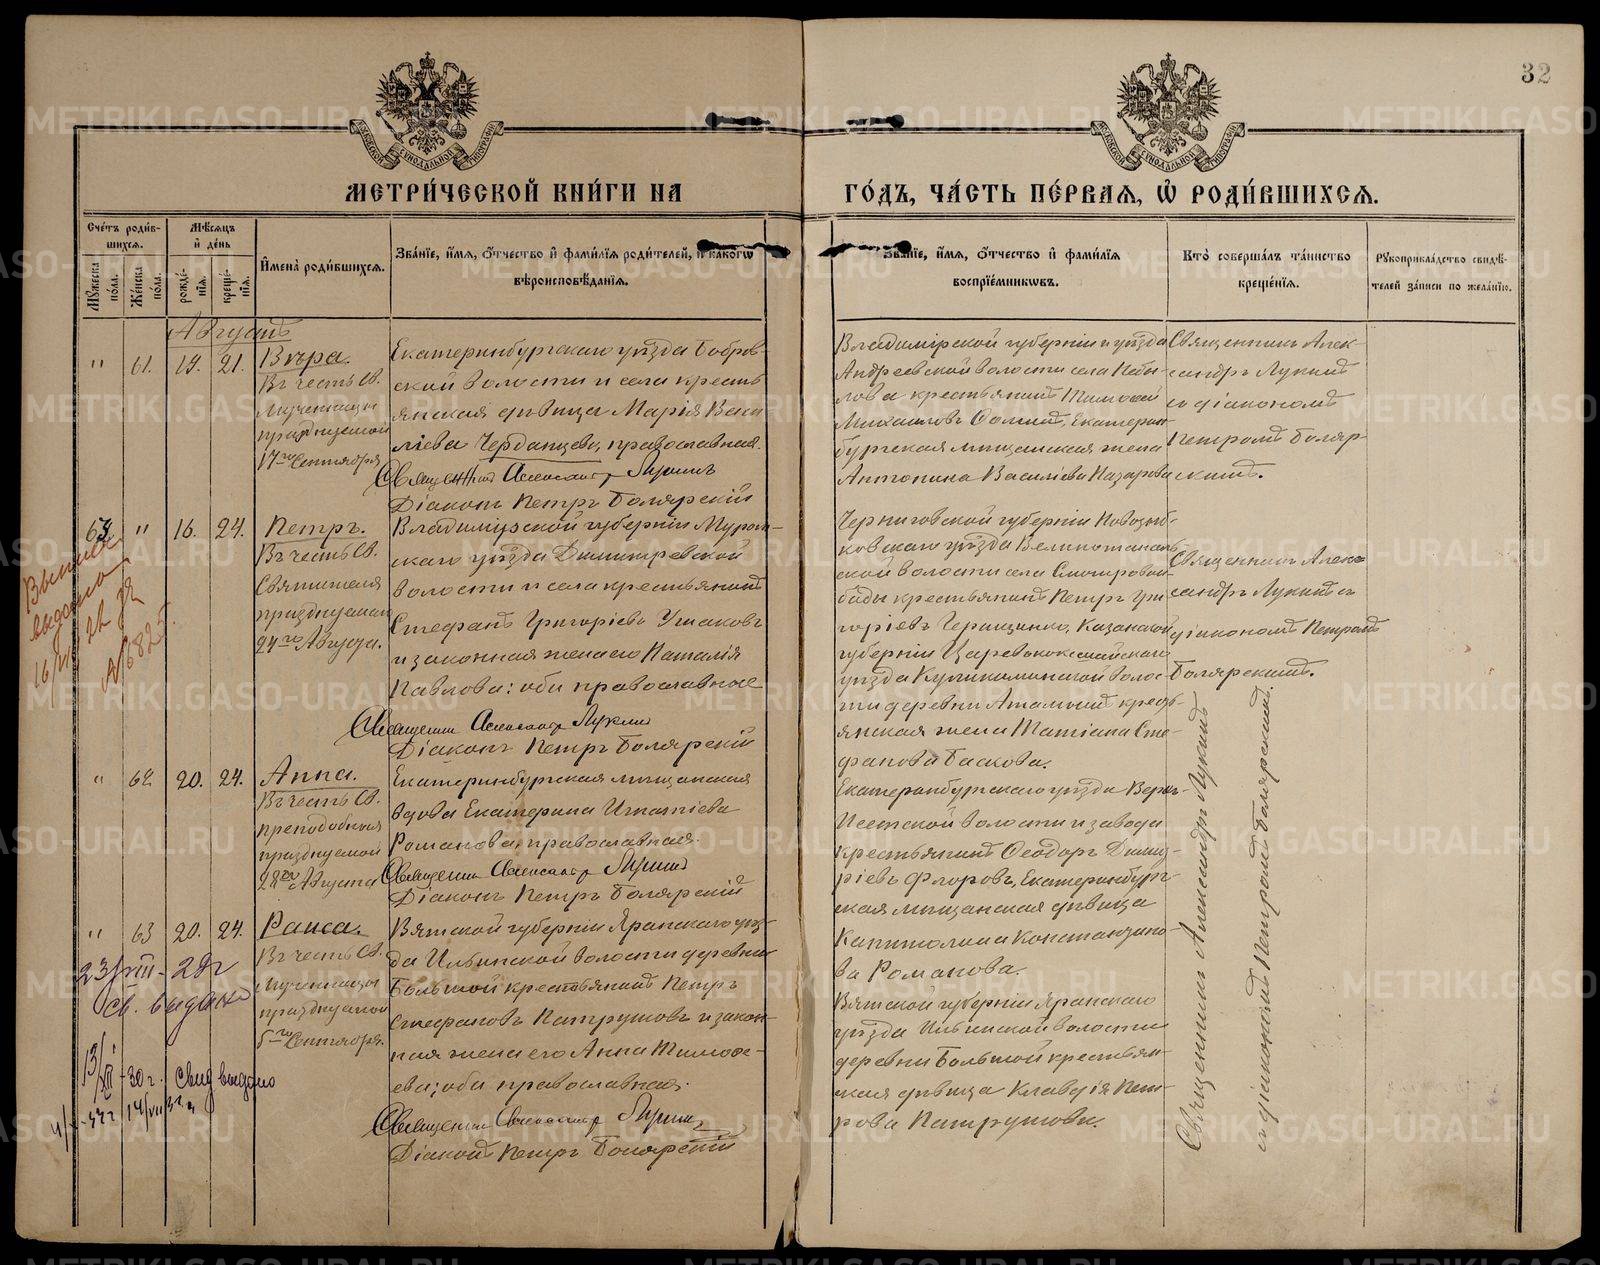 32
МОСКОВСКОЙ СѴНОДАЛЬНОЙ ТИПОГРАФІИ
МОСКОВСКОЙ СѴНОДАЛЬНОЙ ТИПОГРАФІИ
МЕТРИ́ЧЕСКОЙ КНИ́ГИ НА
ГО́ДЪ, ЧА́СТЬ ПЕ́РВАЯ, Ѡ РОДИ́ВШИХСЯ.
Сче́тъ роди́в-
шихся.
Мѣ́сяцъ
и де́нь
Мꙋ́жеска
по́ла.
Же́нска
по́ла.
рожде́-
нія.
креще́-
нія.
Имена̀ роди́вшихся.
Зва́ніе, и́мя, ѻ́тчество и фами́лія роди́телей, и како́гѡ
вѣроисповѣ́данія.
Зва́ніе, и́мя, ѻ́тчество и фами́лія
воспріе́мникѡвъ.
Кто̀ соверша́лъ та́инство
креще́нія.
Рꙋкоприкла́дство свидѣ́-
телей за́писи по жела́нію.
Августъ
" 61. 19. 21. Вѣра.
Въ честь Св.
мученицы
празднуемой
17го Сентября
Екатеринбургскаго уѣзда Бобров-
ской волости и села кресть
янская дѣвица Марія Васи
ліева Черданцева, православная.
Священникъ Александръ Лукинъ
Діаконъ Петръ Болярскій
Владимірской губерніи и уѣзда
Андреевской волости села
крестьянинъ Тимофей
Михаиловъ Екатерин
бургская мѣщанская жена
Антонина Василіева Назарова
Священникъ Алек-
сандръ Лукинъ
съ діакономъ
Петромъ Боляр-
скимъ.
" 16. 24. Петръ.
Въ честь Св.
Святителя
празднуемаго
24го Августа.
Владимірской губерніи Муром-
скаго уѣзда Димитревской
волости и села крестьянинъ
Стефанъ Григоріевъ Ушаковъ
и законная жена его Наталія
Павлова: оби православные
Священникъ Александръ Лукинъ
Діаконъ Петръ Болярскій
Черниговской губерніи Новозыб-
ковскаго уѣзда
ской волости села
боды крестьянинъ Петръ Гри
горіевъ Казанской
губерніи Царевококшайскаго
уѣзда волос-
ти деревни кресть-
янская жена Татіана Сте-
фанова Баскова.
Священникъ Алек-
сандръ Лукинъ съ
діакономъ Петромъ
Болярскимъ.
" 62. 20. 24. Анна.
Въ честь Св.
преподобныя
празднуемой
28го Августа
Екатеринбургская мѣщанская
вдова Екатерина Игнатіева
Романова, православная.
Священникъ Александръ Лукинъ
Діаконъ Петръ Болярскій
Екатеринбургскаго уѣзда Верхъ-
Исетской волости и завода
крестьянинъ Феодоръ Димит-
ріевъ Флоровъ, Екатеринбург-
ская мѣщанская дѣвица
Капитолина Константино-
ва Романова.
" 63 20. 24. Раиса.
Въ честь Св.
мученицы
празднуемой
5го Сентября.
Вятской губерніи Яранскаго уѣз-
да Ильинской волости деревни
Большой крестьянинъ Петръ
Стефановъ Патрушовъ и закон-
ная жена его Анна Тимофе-
ева; оби православная.
Священникъ Александръ Лукинъ
Діаконъ Петръ Болярскій
Вятской губерніи Яранскаго
уѣзда Ильинской волости
деревни Большой крестьян-
ская дѣвица Клавдія Пет-
рова Патрушова.
Священникъ Александръ Лукинъ
съ діакономъ Петромъ Болярскимъ.
выдана
23/VIII-28г
св. выдано
13/XII-30 г. свид выдано
METRIKI.GASO-URAL.RU